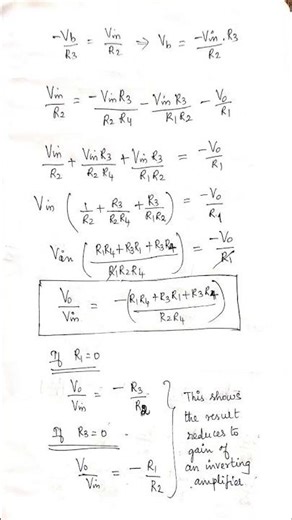 -Vb/R3 = Vin/R2 ⇒ Vb = -Vin.R3/R2
Vin/R2 = -VinR3/R2R4 - VinR3/R1R2 - Vo/R1
Vin/R2 + VinR3/R2R4 + VinR3/R1R2 = -Vo/R1
Vin (1/R2 + R3/R2R4 + R3/R1R2) = -Vo/R1
Vin ((R1R4+R3R1+R3R4)/R1R2R4) = -Vo/R1
Vo/Vin = -((R1R4+R3R1+R3R4)/R2R4)
If R1=0
Vo/Vin = -R3/R2
If R3=0
Vo/Vin = -R1/R2
This shows
the result
reduces to
gain of
an inverting
amplifier